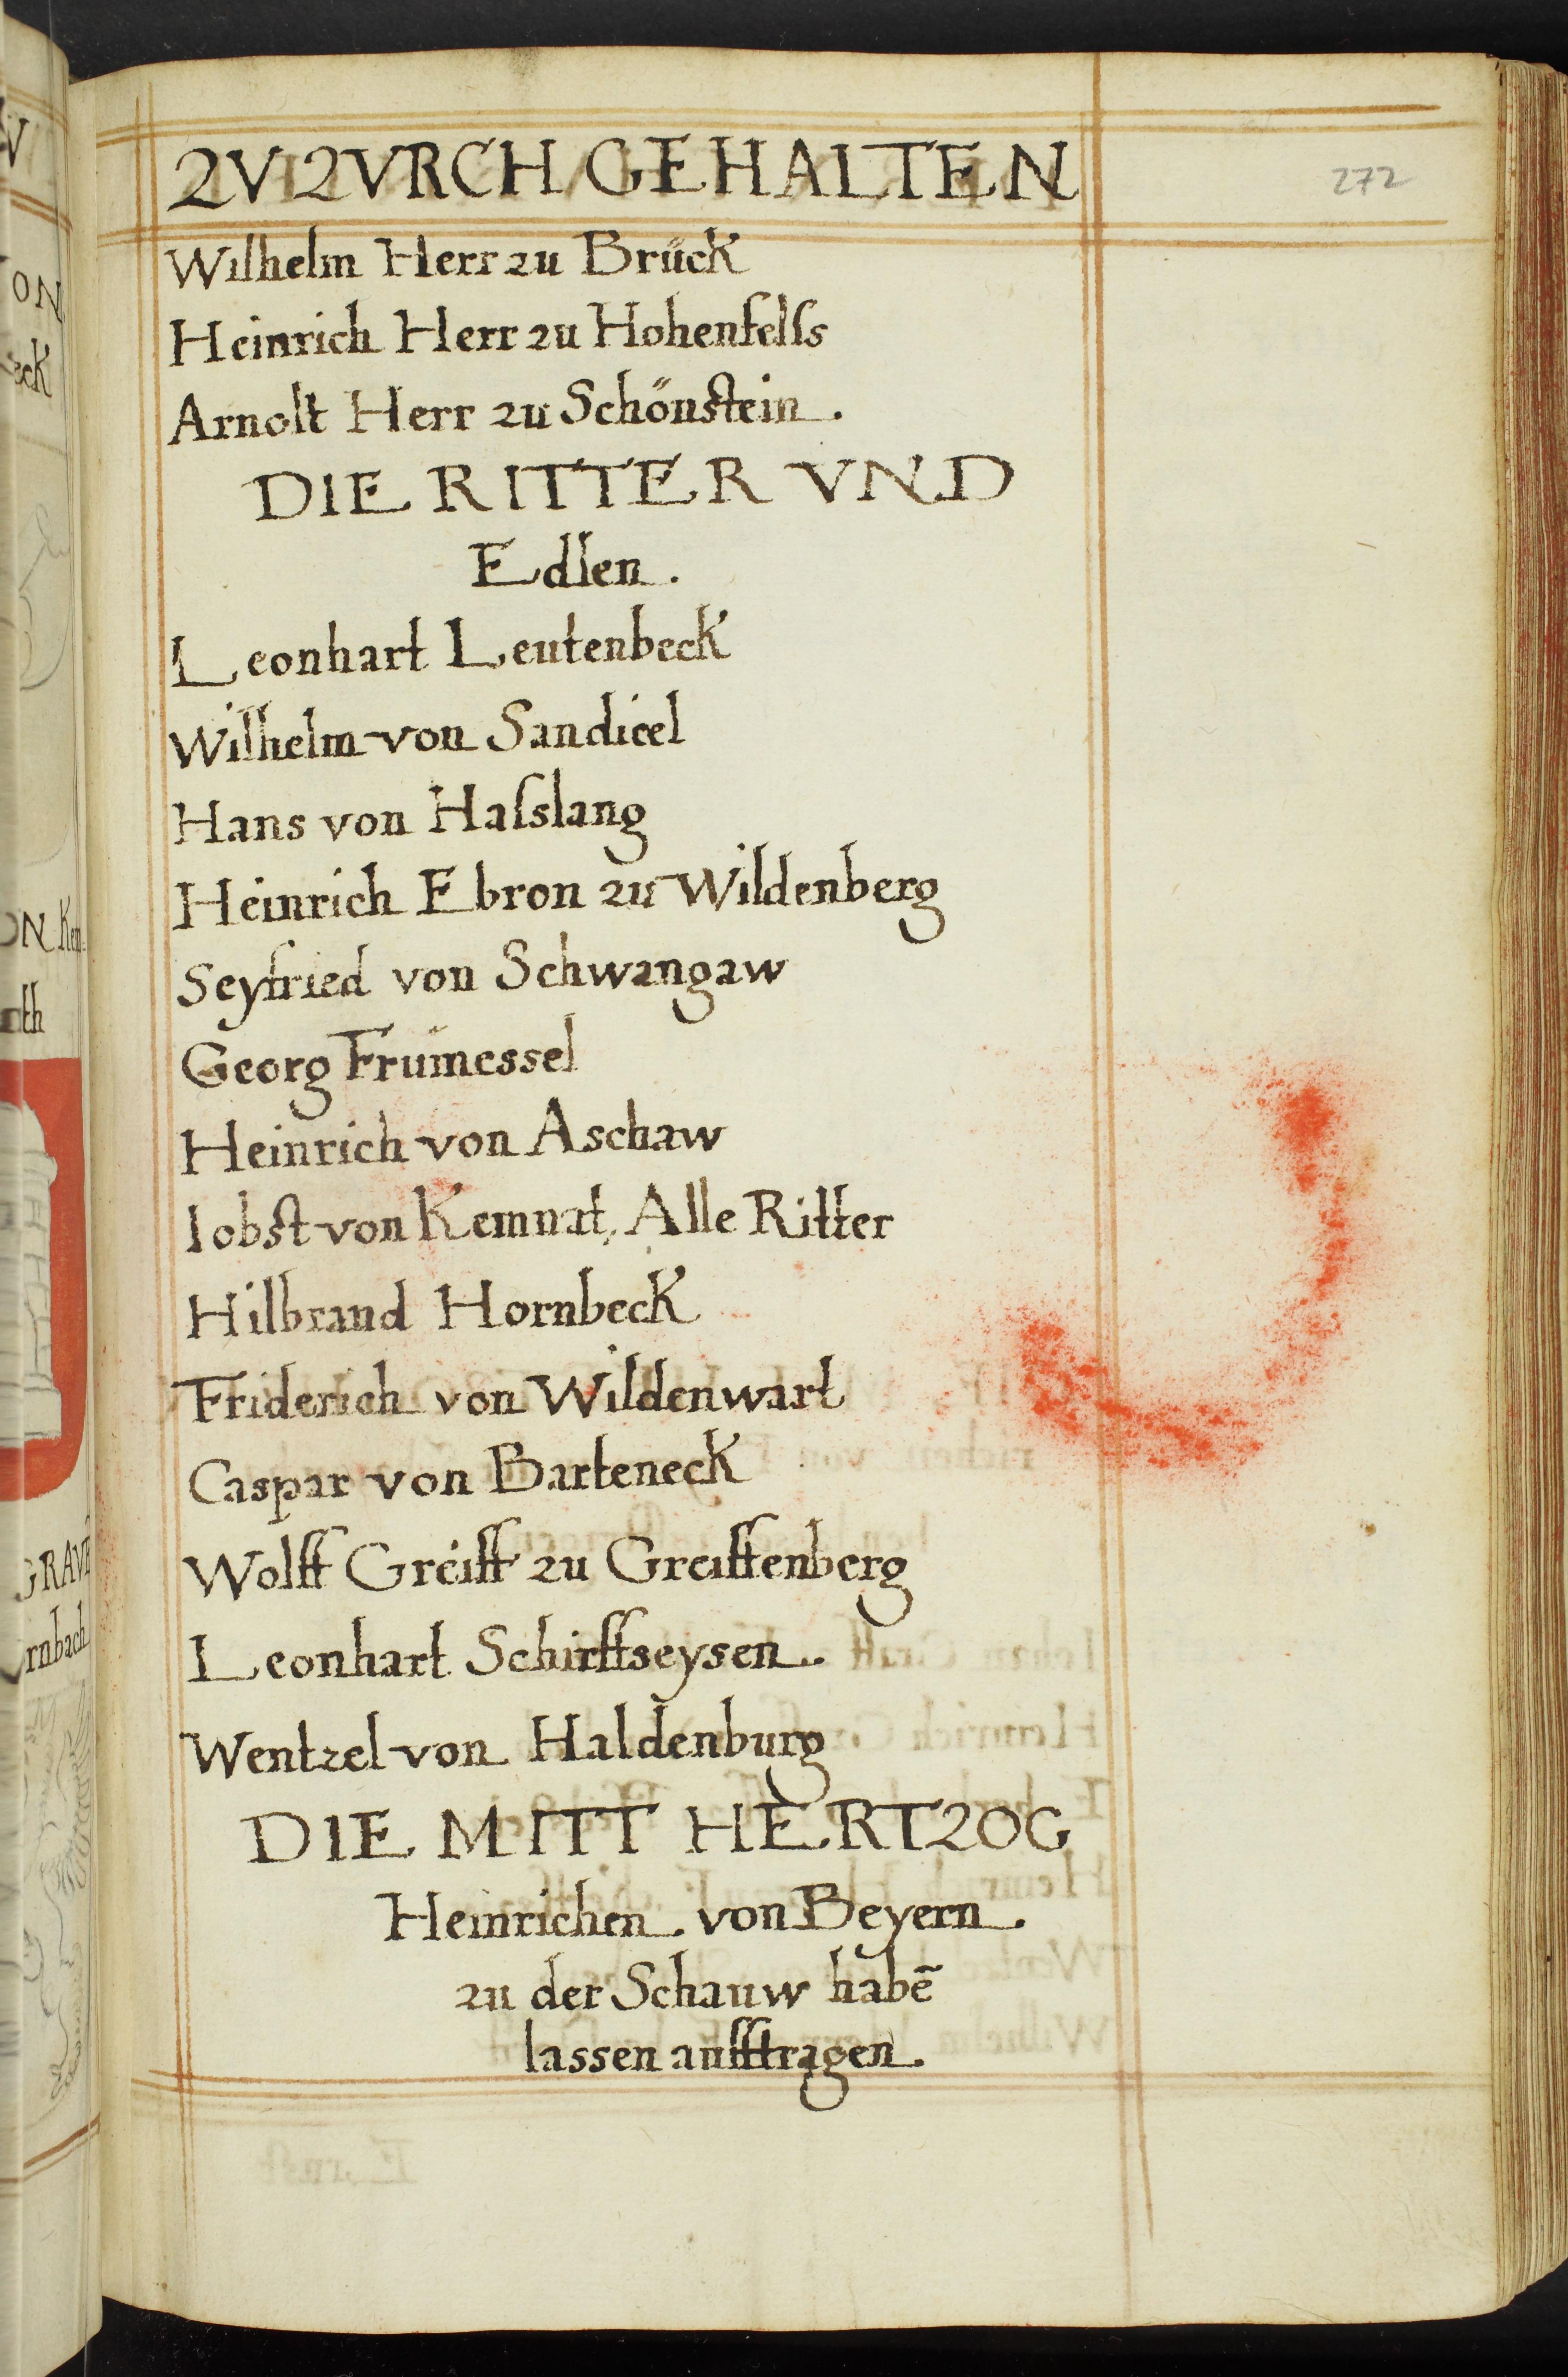 ZV ZVRCH GEHALTEN
272
Wilhelm Herr zu Brück
Heinrich Herr zu Hohenfelſs
Arnolt Herr zu Schönstein.
DIE RITTER VND
Edlen.
Leonhart Leutenbeck
Wilhelm von Sandicel
Hans von Haſslang
Heinrich Ebron zu Wildenberg
Seyfried von Schwangaw
Georg Frumessel
Heinrich von Aschaw
Iobst von Kemnat, Alle Ritter
Hilbrand Hornbeck
Friderich von Wildenwart
Caspar von Barteneck
Wolff Greiff zu Greiffenberg
Leonhart Schirffseysen.
Wentzel von Haldenburg
DIE MITT HERTZOG
Heinrichen von Beyern.
zu der Schauw habē
lassen aufftragen.